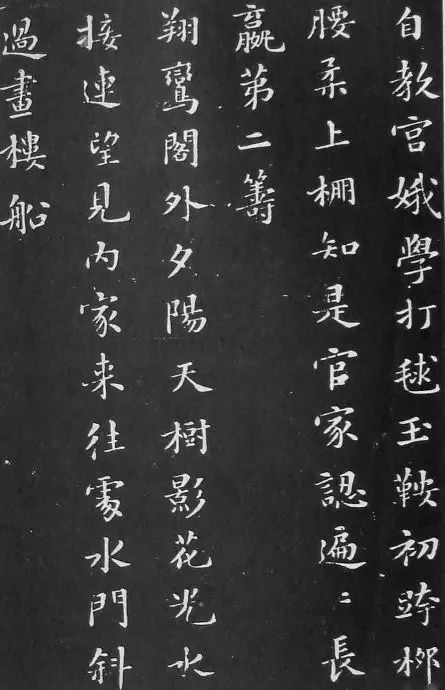 自教宮娥學打毬玉鞍初跨柳
腰柔上棚知是官家認遍〻長
贏第二籌
翔鸞閣外夕陽天樹影花光水
接連望見內家来往處水門斜
過畫樓船